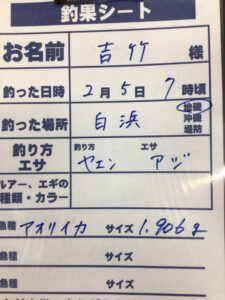 釣果シート
お名前 吉竹 様
釣った日時 2月5日 7時頃
釣った場所 白浜 地磯
沖磯
堤防
釣り方 エサ
釣り方 エサ
ヤエン アジ
ルアー、エギの
種類・カラー
魚種 アオリイカ サイズ 1,906g
魚種 サイズ
魚種 サイズ